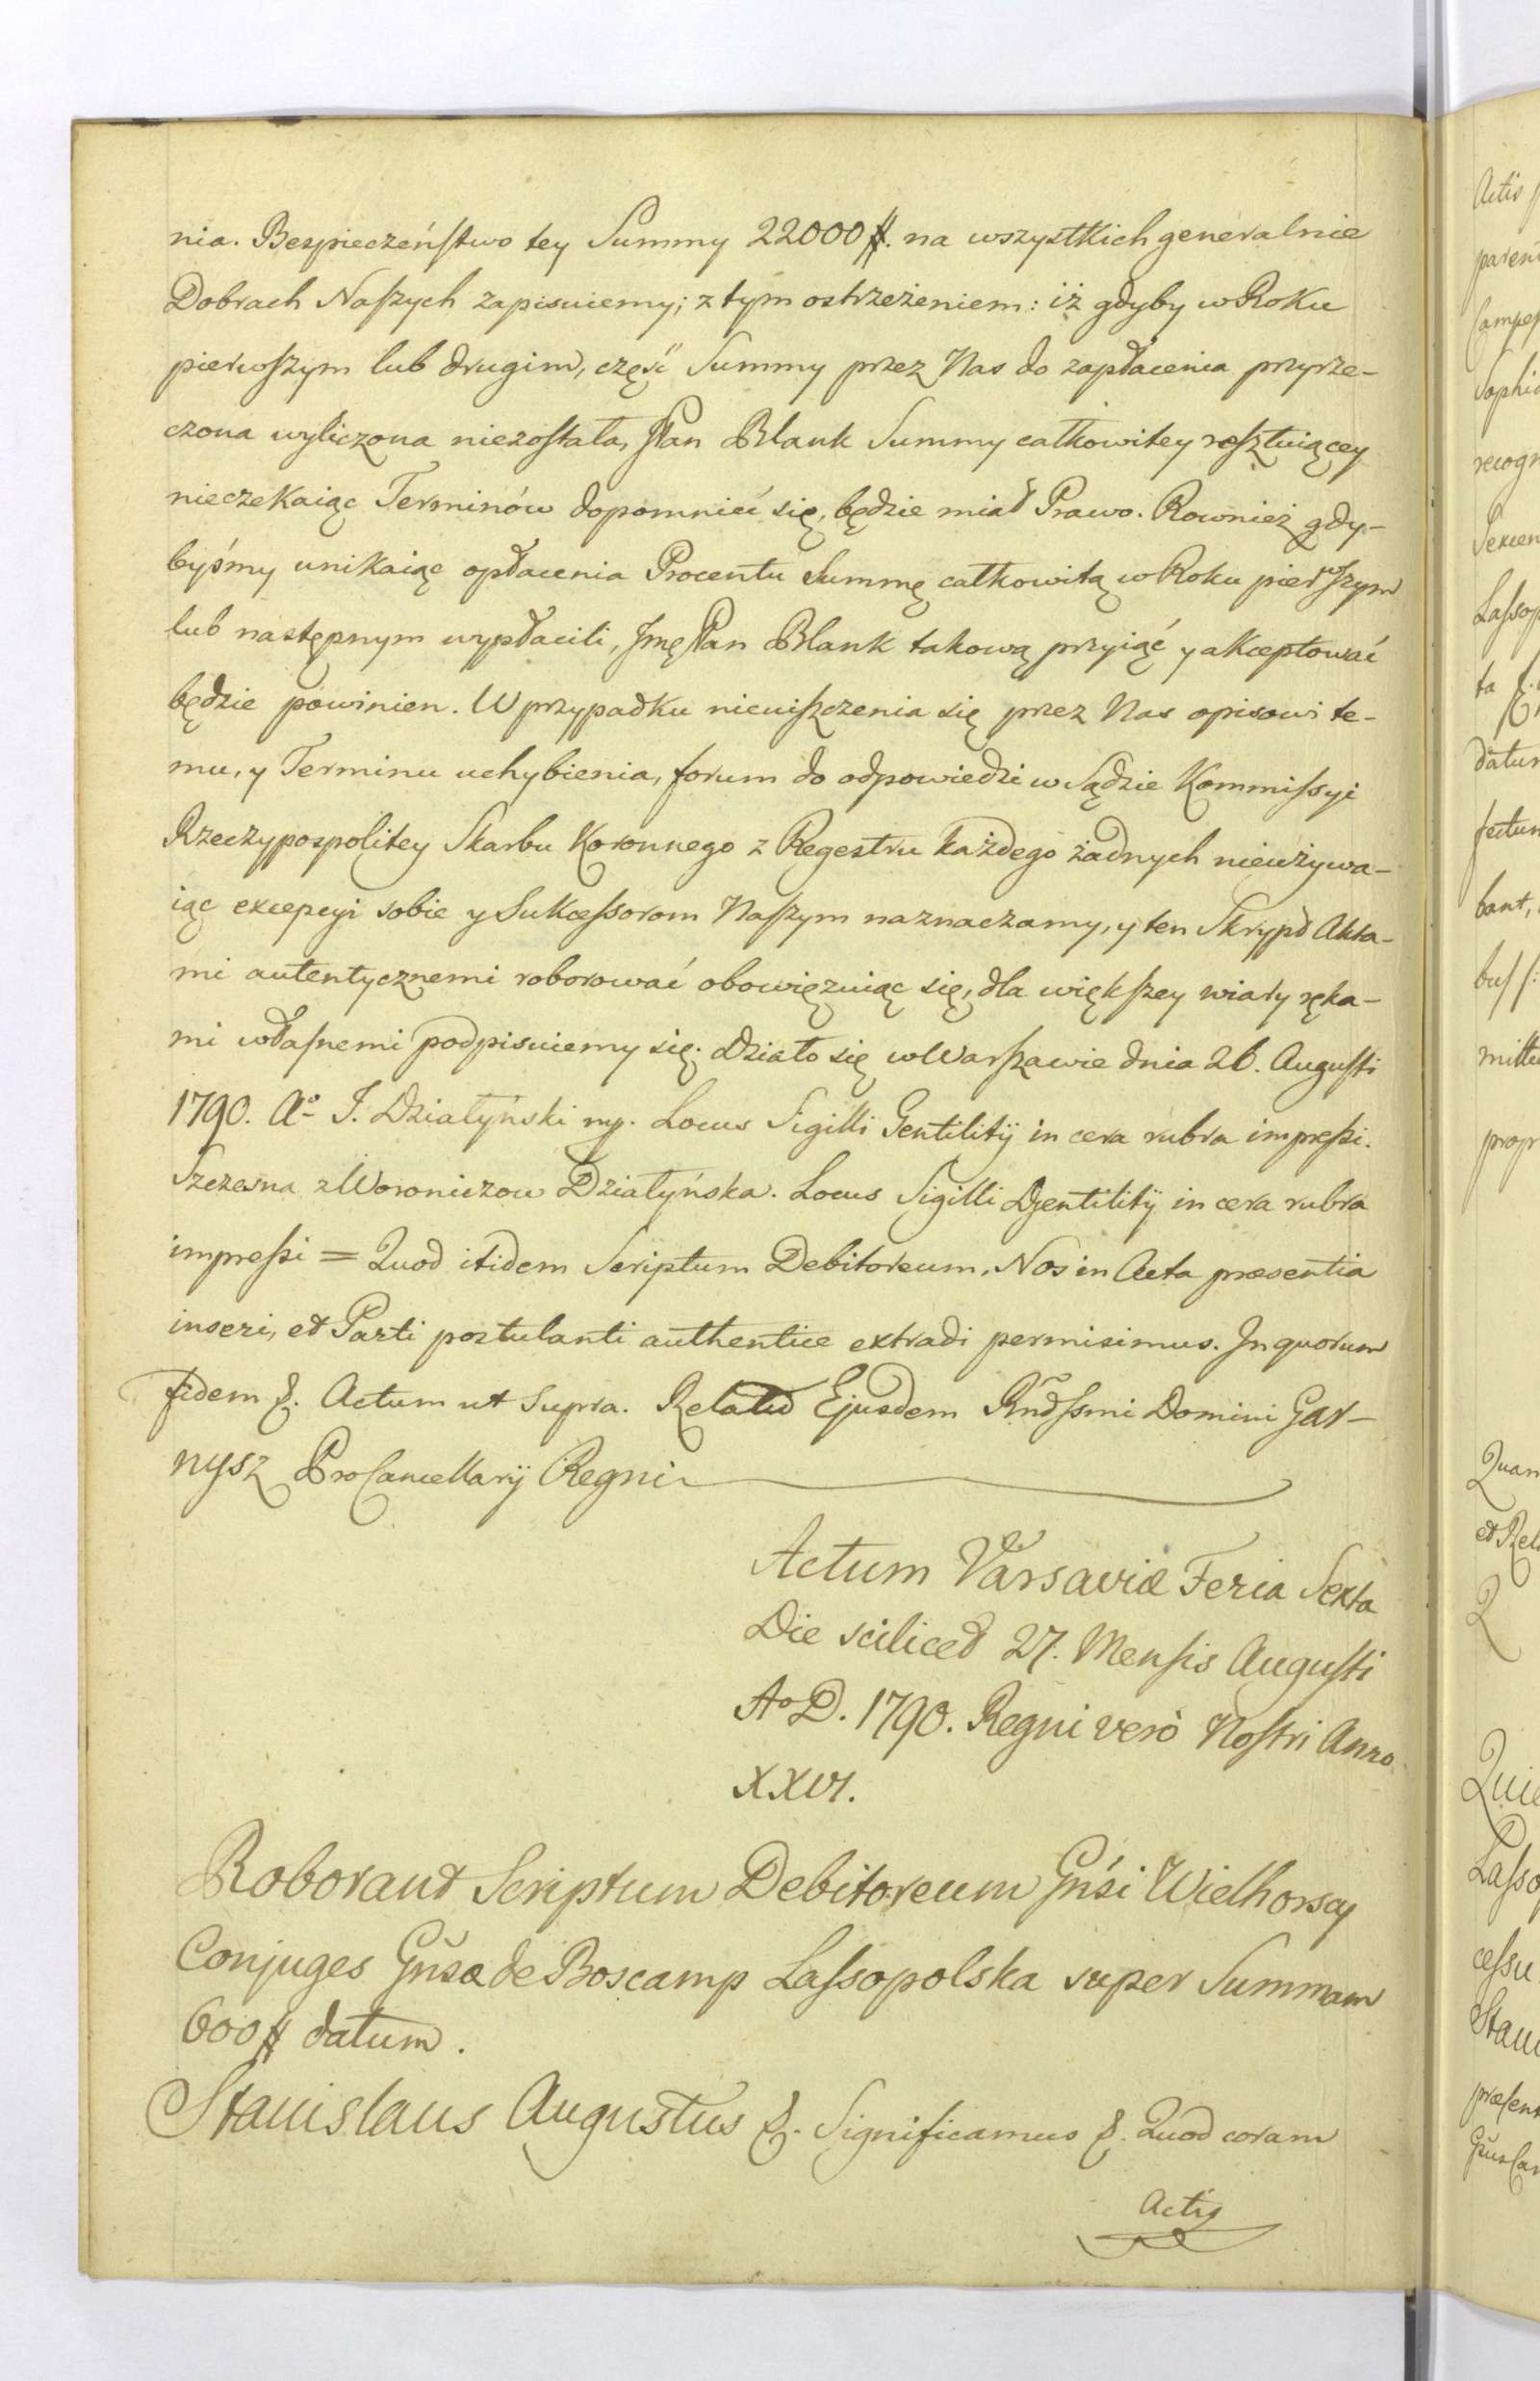 nia. Bezpieczeństwo tey Summy 22000 #. na wszystkich generalnie
Dobrach Naszych zapisuiemy; z tym ostrzeżeniem: iż gdyby w Roku
pierwszym lub drugim, część Summy przez Nas do zapłacenia przyrze-
czona wyliczona niezostała, JPan Blank Summy całkowitey resztuiącey
nieczekaiąc Terminów dopomnieć się, będzie miał Prawo. Rownież gdy-
byśmy unikaiąc opłacenia Procentu Summę całkowitą w Roku pierwszym
lub następnym wypłacili, Jmć Pan Blank takową przyiąć y akceptować
będzie powinien. W przypadku nieuiszczenia się przez Nas opisowi te-
mu, y Terminu uchybienia, forum do odpowiedzi w Sądzie Kommissyi
Rzeczypospolitey Skarbu Koronnego z Regestru każdego żadnych nieużywa-
iąc excepcyi sobie y Sukcessorom Naszym naznaczamy, y ten Skrypt Akta-
mi autentycznemi roborować obowięzuiąc się, dla większey wiary ręka-
mi własnemi podpisuiemy się. Działo się w Warszawie dnia 26. Augusti
1790. Aº J. Działyński mp. Locus Sigilli Gentilitij in cera rubra impressi.
Szczesna z Woroniczow Działyńska. Locus Sigilli Gentilitij in cera rubra
impressi = Quod itidem Scriptum Debitoreum, Nos in Acta præsentia
inseri, et Parti postulanti authentice extradi permisimus. In quorum
fidem &. Actum ut supra. Relatio Ejusdem Rndssmi Domini Gar-
nysz ProCancellarij Regni
Actum Varsaviæ Feria Sexta
Die scilicet 27. Mensis Augusti
Ao D. 1790. Regni verò Nostri Anno
XXVI.
Roborant Scriptum Debitoreum Gnsi Wielhorscy
Conjuges Gnsæ de Boscamp Lassopolska super Summam
600 # datum.
Stanislaus Augustus &. Significamus &. Quod coram
Actis
Actis